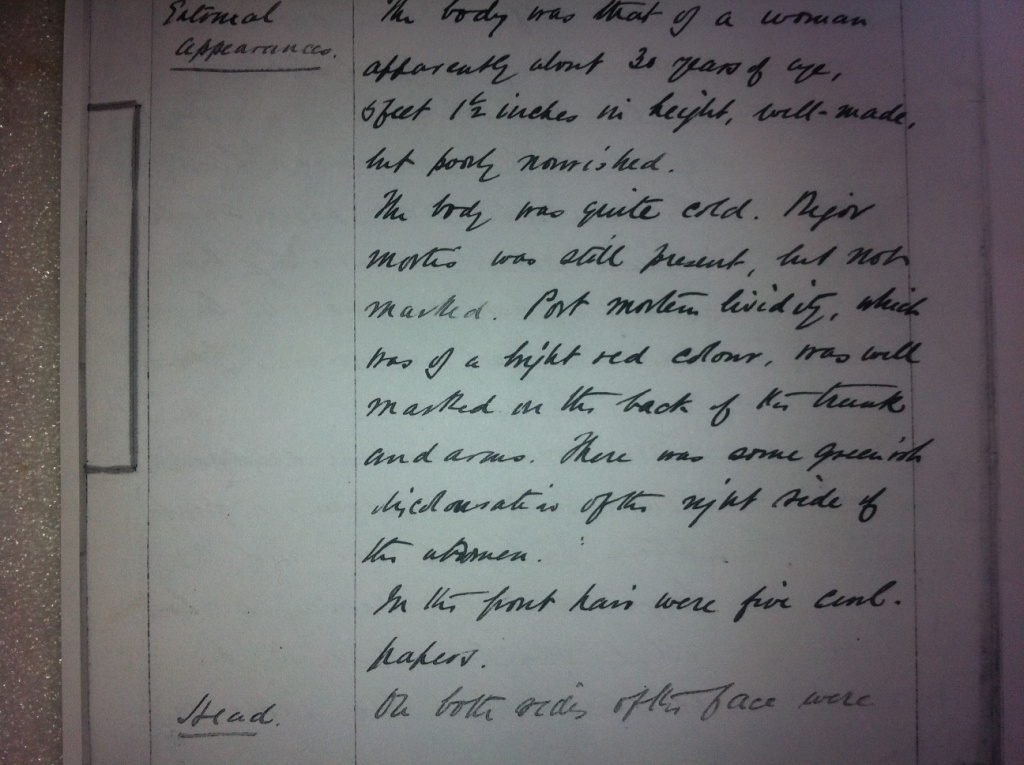 External
Appearances.
The body was that of a woman
apparently about 30 years of age,
5 feet 1½ inches in height, well-made,
but poorly nourished.
The body was quite cold. Rigor
mortis was still present, but not
marked. Post mortem lividity, which
was of a bright red colour, was well
marked on the back of the trunk
and arms. There was some greenish
discolouration of the right side of
the abdomen.
In the front hair were five curl-
papers.
Head.
On both sides of the face were